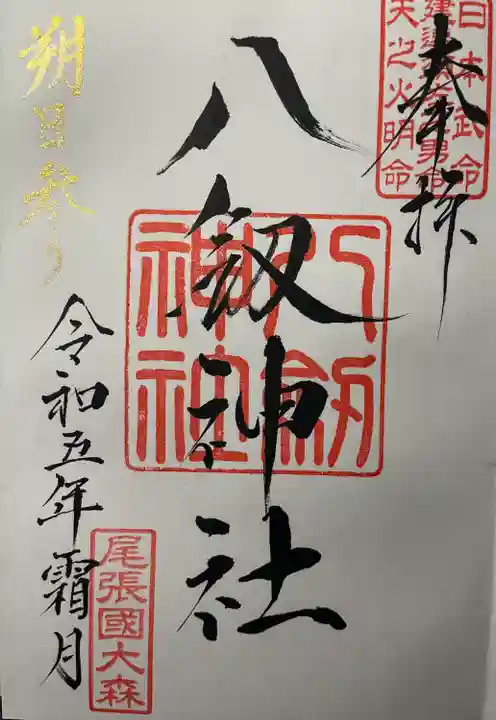 奉拝
日本武命
天之火明命
八剱神社
八剱
神社
朔日参り
令和五年霜月
尾張國大森